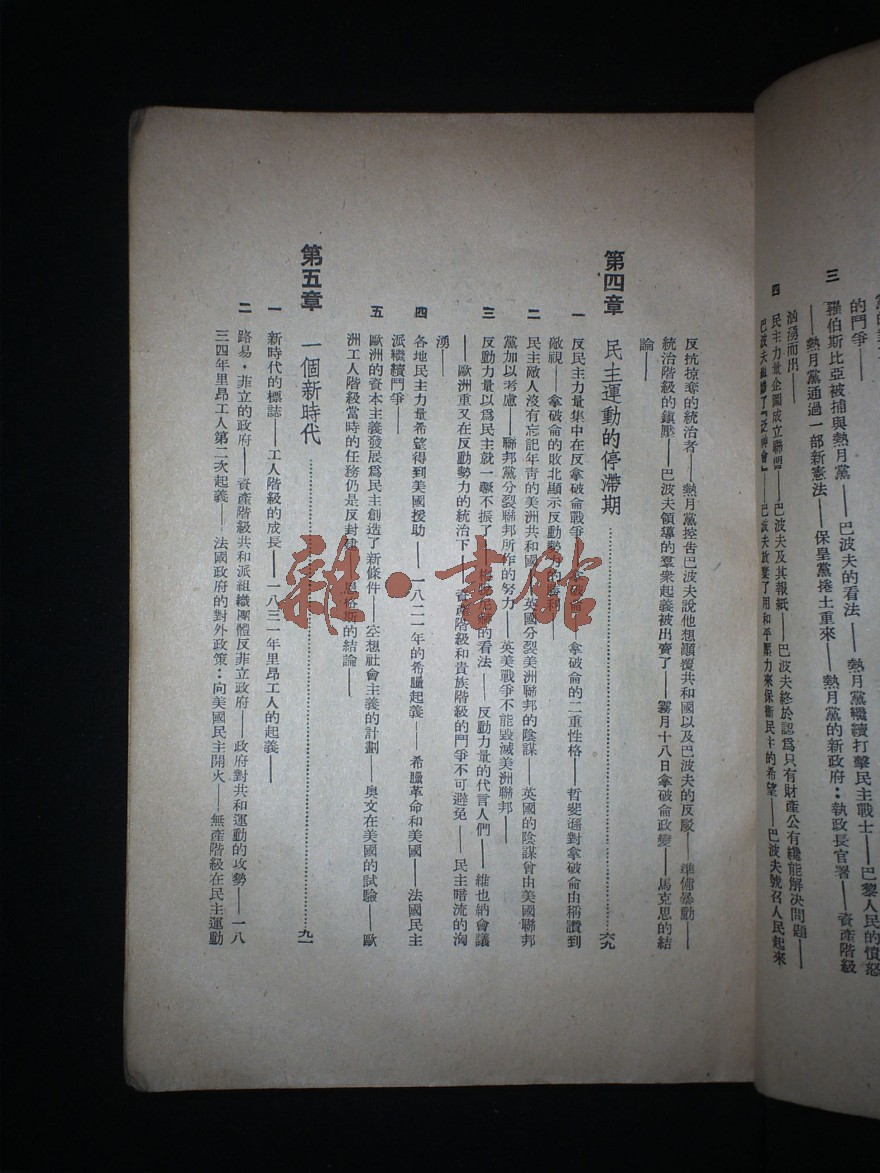 的鬥爭——
三 羅伯斯比亞被捕與熱月黨——巴波夫的看法——熱月黨繼續打擊民主戰士——巴黎人民的憤怒
——熱月黨通過一部新憲法——保皇黨捲土重來——熱月黨的新政府：執政長官署——資產階級
洶湧而出——
四 民主力量企圖成立聯盟——巴波夫及其報紙——巴波夫終於認爲只有財產公有纔能解決問題——
巴波夫組織了「泛神會」——巴波夫放棄了用和平壓力來保衛民主的希望——巴波夫號召人民起來
反抗掠奪的統治者——熱月黨控告巴波夫說他想顛覆共和國以及巴波夫的反駁——準備暴動——
統治階級的鎮壓——巴波夫領導的羣衆起義被出賣了——霧月十八日拿破侖政變——馬克思的結
論——
第四章 民主運動的停滯期……六九
一 反民主力量集中在反拿破侖戰爭——拿破侖——拿破侖的二重性格——哲斐遜對拿破侖由稱讚到
敵視——拿破侖的敗北顯示反動勢力的勝利——
二 民主敵人沒有忘記年青的美洲共和國——英國分裂美洲聯邦的陰謀——英國的陰謀曾由美國聯邦
黨加以考慮——聯邦黨分裂聯邦所作的努力——英美戰爭不能毀滅美洲聯邦——
三 反動力量以爲民主就一蹶不振了——的看法——反動力量的代言人們——維也納會議
——歐洲重又在反動勢力的統治下——資產階級和貴族階級的鬥爭不可避免——民主暗流的洶
湧——
四 各地民主力量希望得到美國援助——一八二一年的希臘起義——希臘革命和美國——法國民主
派繼續鬥爭——
五 歐洲的資本主義發展爲民主創造了新條件——空想社會主義的計劃——奧文在美國的試驗——歐
洲工人階級當時的任務仍是反封建——恩格斯的結論——
第五章 一個新時代……九一
一 新時代的標誌——工人階級的成長——一八三一年里昂工人的起義——
二 路易·菲立的政府——資產階級共和派組織團體反菲立政府——政府對共和運動的攻勢——一八
三四年里昂工人第二次起義——法國政府的對外政策：向美國民主開火——無產階級在民主運動
雜·書館